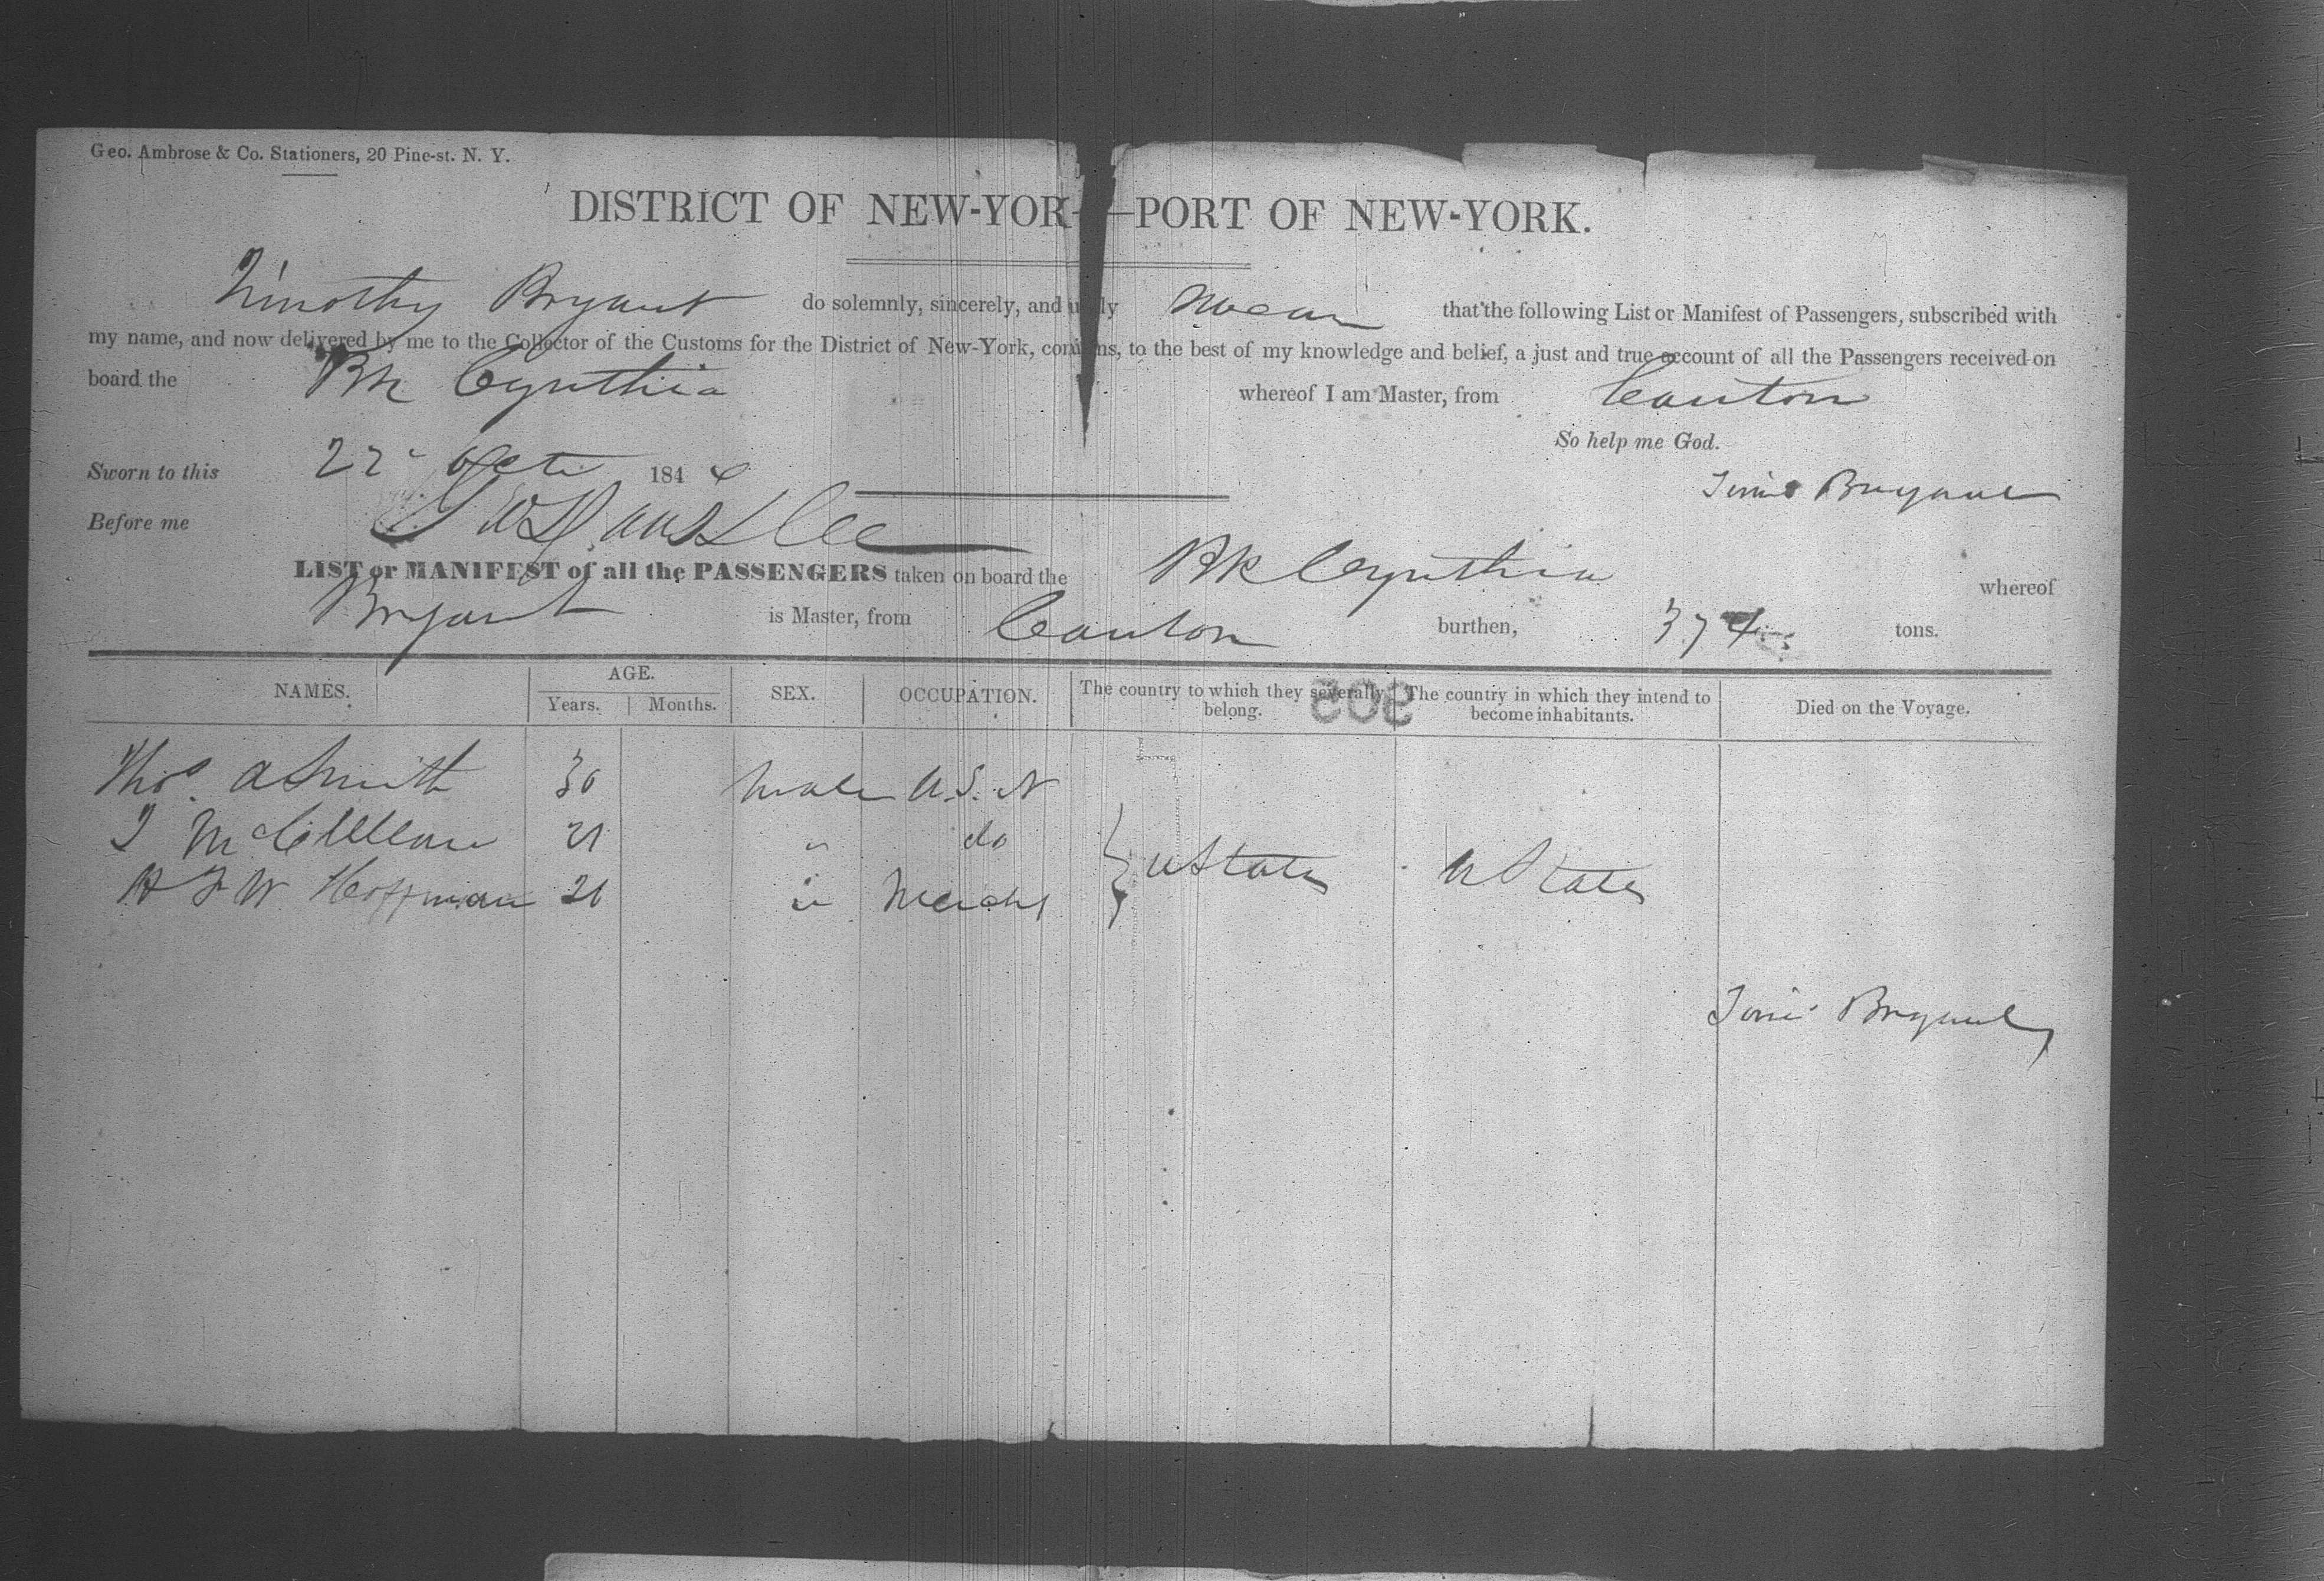 Geo. Ambrose & Co. Stationers, 20 Pine-st. N. Y.
DISTRICT OF NEW-YOR-—PORT OF NEW-YORK.
Timothy Bryant do solemnly, sincerely, and ly swear that the following List or Manifest of Passengers, subscribed with
my name, and now delivered by me to the Collector of the Customs for the District of New-York, contains, to the best of my knowledge and belief, a just and true account of all the Passengers received on
board the Bk Cynthia whereof I am Master, from Canton
So help me God.
Sworn to this 22 Oct 184
Bryant
Before me
LIST or MANIFEST of all the PASSENGERS taken on board the Bk Cynthia whereof
Bryant is Master, from Canton burthen, 374 tons.
NAMES. AGE. SEX. OCCUPATION. The country to which they severally belong. The country in which they intend to become inhabitants. Died on the Voyage.
Years. Months.
505
Thos. A Smith 30 male U.S. N
McClellan 21 " do
H F W Hoffman " Mercht } U States U States
Bryant